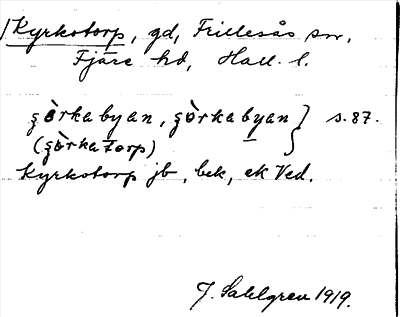 Kyrkotorp, gd, Frillesås sn,
Fjäre hd, Hall. l.
şò̀rkabyan, şò̀rkabyan } s. 87.
(şò̀rkatorp)
Kyrkotorp jb, bek, ek Ved.
J. Sahlgren 1919.